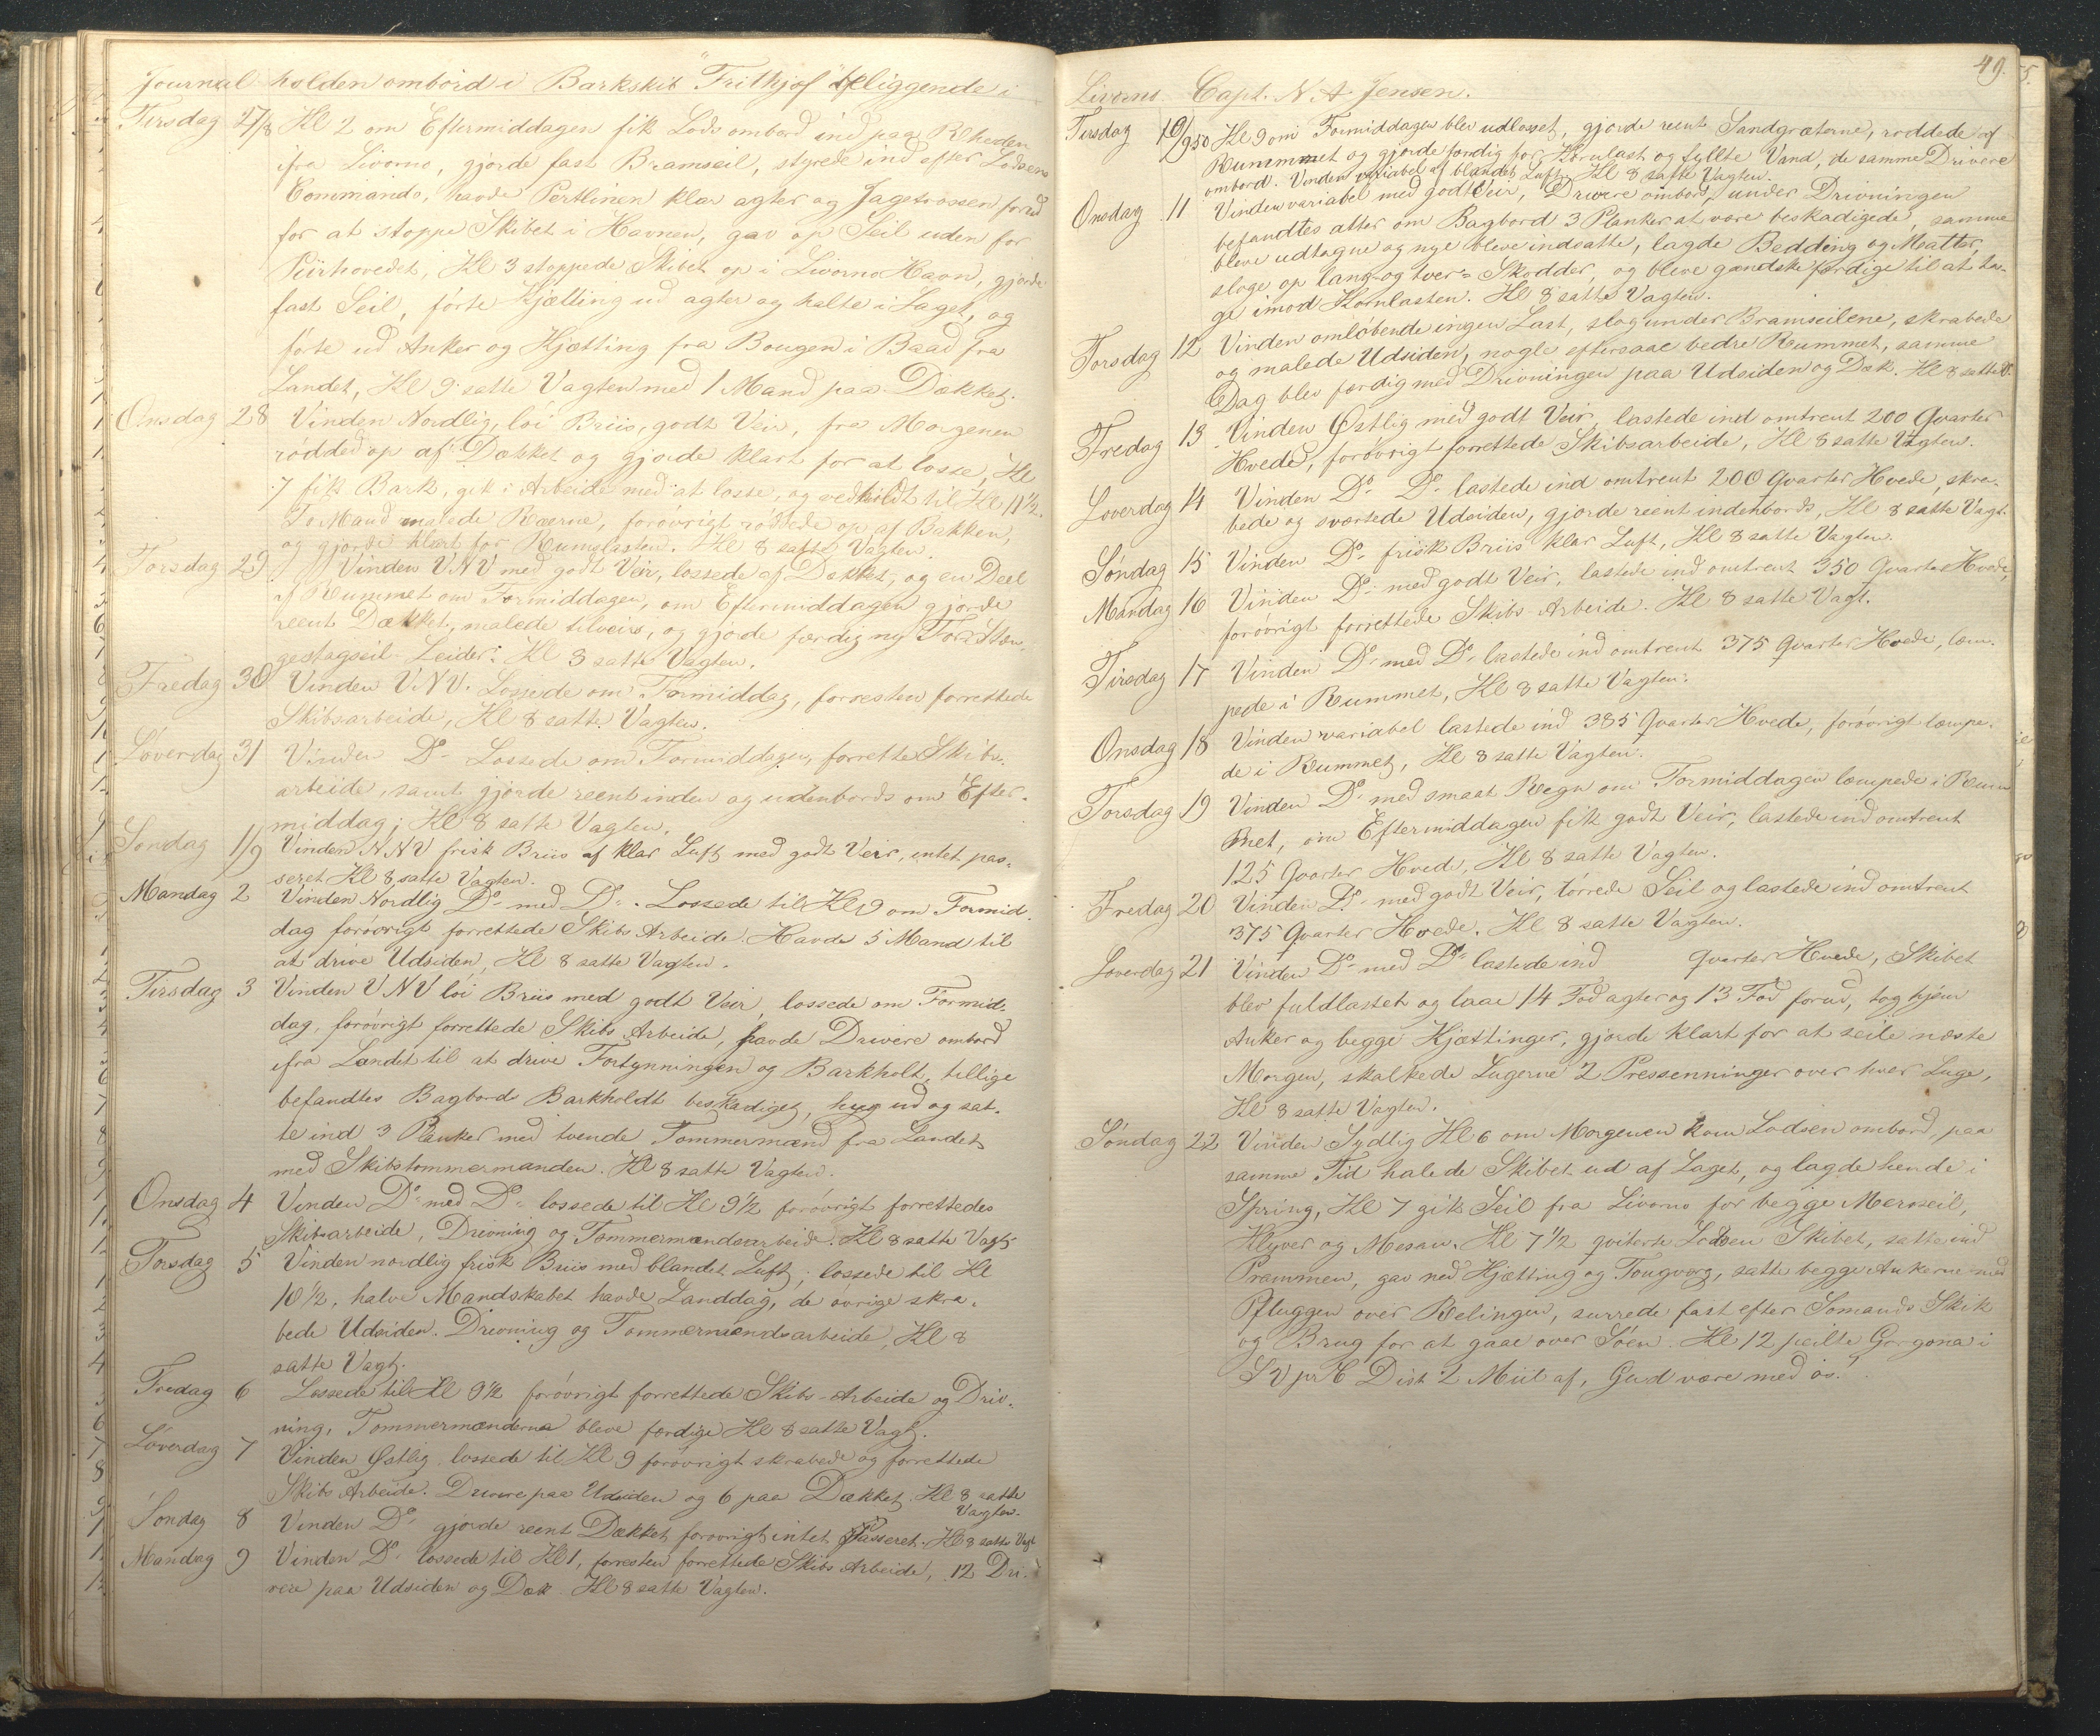 Journal holden ombord i Barkskib "Frithjof" liggende i
Tirsdag 27/8 Kl 2 om Eftermiddagen fik Lods ombord ind paa Rheden
ifra Livorno, gjorde fast Bramseil, styrede ind efter Lodsens
Commando, havde Pertlinen klar agter og Jagetrossen forud
for at stoppe Skibet i Havnen, gav op Seil uden for
Piirhovedet, Kl 3 stoppede Skibet op i Livorno Havn, gjorde
fast Seil, førte Kjætting ud agter og halte i Laget, og
førte ud Anker og Kjætting fra Bougen i Baad fra
Landet, Kl 9 satte Vagten med 1 Mand paa Dækket.
Onsdag 28 Vinden Nordlig, løi Briis, godt Veir, fra Morgenen
rødded op af Dækket og gjorde klart for at losse, Kl
7 fik Bark, gik i Arbeide med at losse, og vedhildt til Kl 11 1/2.
To Mand malede Ræerne, forøvrigt røddede op af Bakken,
og gjorde klart for Rumslasten. Kl 8 satte Vagten.
Torsdag 29 Vinden VNV med godt Veir, lossede af Dækket, og en Deel
af Rummet om Formiddagen, om Eftermiddagen gjorde
reent Dækket, malede tilveirs, og gjorde færdig ny For Stæn-
gestagseil Leider. Kl 8 satte Vagten.
Fredag 30 Vinden VNV. Lossede om Formiddag, forresten forrettede
Skibsarbeide, Kl 8 satte Vagten.
Løverdag 31 Vinden Do Lossede om Formiddagen, forrette Skibs-
arbeide, samt gjorde reent inden og udenbords om Efter-
middag; Kl 8 satte Vagten.
Søndag 1/9 Vinden NNV frisk Briis af klar Luft med godt Veir, intet pas-
seret Kl 8 satte Vagten.
Mandag 2 Vinden Nordlig Do med Do. Lossede til Kl 9 om Formid-
dag forøvrigt forrettede Skibs Arbeide. Havde 5 Mand til
at drive Udsiden, Kl 8 satte Vagten.
Tirsdag 3 Vinden VNV løi Briis med godt Veir, lossede om Formid-
dag, forøvrigt forrettede Skibs Arbeide, havde Drivere ombord
ifra Landet til at drive Fortynningen og Barkholt, tillige
befandtes Bagbords Barkholdt beskadiget, hug ud og sat-
te ind 3 Planker med tvende Tømmermænd fra Landet
med Skibstømmermanden. Kl 8 satte Vagten.
Onsdag 4 Vinden Do med Do lossede til Kl 9 1/2 forøvrigt forrettedes
Skibsarbeide, Drivning og Tømmermandsarbeide. Kl 8 satte Vagt
Torsdag 5 Vinden nordlig frisk Briis med blandet Luft; lossede til Kl
10 1/2, halve Mandskabet havde Landdag, de øvrige skra-
bede Udsiden. Drivning og Tømmermandsarbeide, Kl 8
satte Vagt.
Fredag 6 Lossede til Kl 9 1/2 forøvrigt forrettede Skibs-Arbeide og Driv-
ning, Tømmermænderne bleve færdige Kl 8 satte Vagt.
Løverdag 7 Vinden Østlig, lossede til Kl 9 forøvrigt skrabede og forrettede
Skibs Arbeide. Drivere paa Udsiden og 6 paa Dækket. Kl 8 satte
Vagten.
Søndag 8 Vinden Do gjorde reent Dækket forøvrigt intet Passeret. Kl 8 satte Vagt
Mandag 9 Vinden Do lossede til Kl 1, forresten forrettede Skibs Arbeide, 12 Dri-
vere paa Udsiden og Dæk. Kl 8 satte Vagten.
49.
Livorno Capt. N. A. Jensen.
Tirsdag 10/9 50 Kl 9 om Formiddagen blev udlosset, gjorde reent Sandgræterne, røddede af
Rummmet og gjorde færdig for Kornlast og fyllte Vand, de samme Drivere
ombord. Vinden variabel af blandet Luft, Kl 8 satte Vagten.
Onsdag 11 Vinden variabel med godt Veir, Drivere ombord, under Drivningen
befandtes atter om Bagbord 3 Planker at være beskadigede, samme
bleve udtagne og nye bleve indsatte, lagde Bedding og Matter,
sloge op lang- og tver- Skodder, og bleve gandske færdige til at ta-
ge imod Kornlasten. Kl 8 satte Vagten.
Torsdag 12 Vinden omløbende ingen Last, slog under Bramseilene, skrabede
og malede Udsiden, nogle eftersaae bedre Rummet, samme
Dag blev færdig med Drivningen paa Udsiden og Dæk. Kl 8 satte V.
Fredag 13 Vinden Østlig med godt Veir, lastede ind omtrent 200 Qvarter
Hvede, forøvrigt forrettede Skibsarbeide, Kl 8 satte Vagten.
Løverdag 14 Vinden Do Do lastede ind omtrent 200 Qvarter Hvede, skra-
bede og sværtede Udsiden, gjorde reent indenbords, Kl 8 satte Vagt.
Søndag 15 Vinden Do frisk Briis klar Luft, Kl 8 satte Vagten.
Mandag 16 Vinden Do med godt Veir, lastede ind omtrent 350 Qvarter Hvede,
forøvrigt forrettede Skibs-Arbeide. Kl 8 satte Vagt.
Tirsdag 17 Vinden Do med Do lastede ind omtrent 375 Qvarter Hvede, læm-
pede i Rummet, Kl 8 satte Vagten.
Onsdag 18 Vinden variabel lastede ind 385 Qvarter Hvede, forøvrigt læmpe-
de i Rummet, Kl 8 satte Vagten.
Torsdag 19 Vinden Do med smaat Regn om Formiddagen læmpede i Rum
met, om Eftermiddagen fik godt Veir, lastede ind omtrent
125 Qvarter Hvede, Kl 8 satte Vagten.
Fredag 20 Vinden Do med godt Veir, tørrede Seil og lastede ind omtrent
375 Qvarter Hvede. Kl 8 satte Vagten.
Løverdag 21 Vinden Do med Do lastede ind Qvarter Hvede, Skibet
blev fuldlastet og laae 14 Fod agter og 13 Fod forud, tog hjem
Anker og begge Kjættinger, gjorde klart for at seile næste
Morgen, skalkede Lugerne 2 Pressenninger over hver Luge,
Kl 8 satte Vagten.
Søndag 22 Vinden Sydlig Kl 6 om Morgenen kom Lodsen ombord, paa
samme Tid halede Skibet ud af Laget, og lagde hende i
Spring, Kl 7 gik Seil fra Livorno for begge Merseil,
Klyver og Mesan. Kl 7 1/2 qviterte Lodsen Skibet, satte ind
Prammen, gav ned Kjætting og Tougværg, satte begge Ankerne med
Pfluggen over Relingen, surrede fast efter Sømands Skik
og Brug for at gaae over Søen. Kl 12 peilte Gorgona i
SV pr C Dist 2 Miil af, Gud være med os!